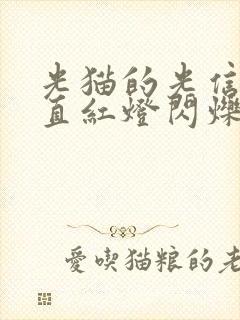 光猫的光信
直紅燈閃爍
愛喫猫粮的老